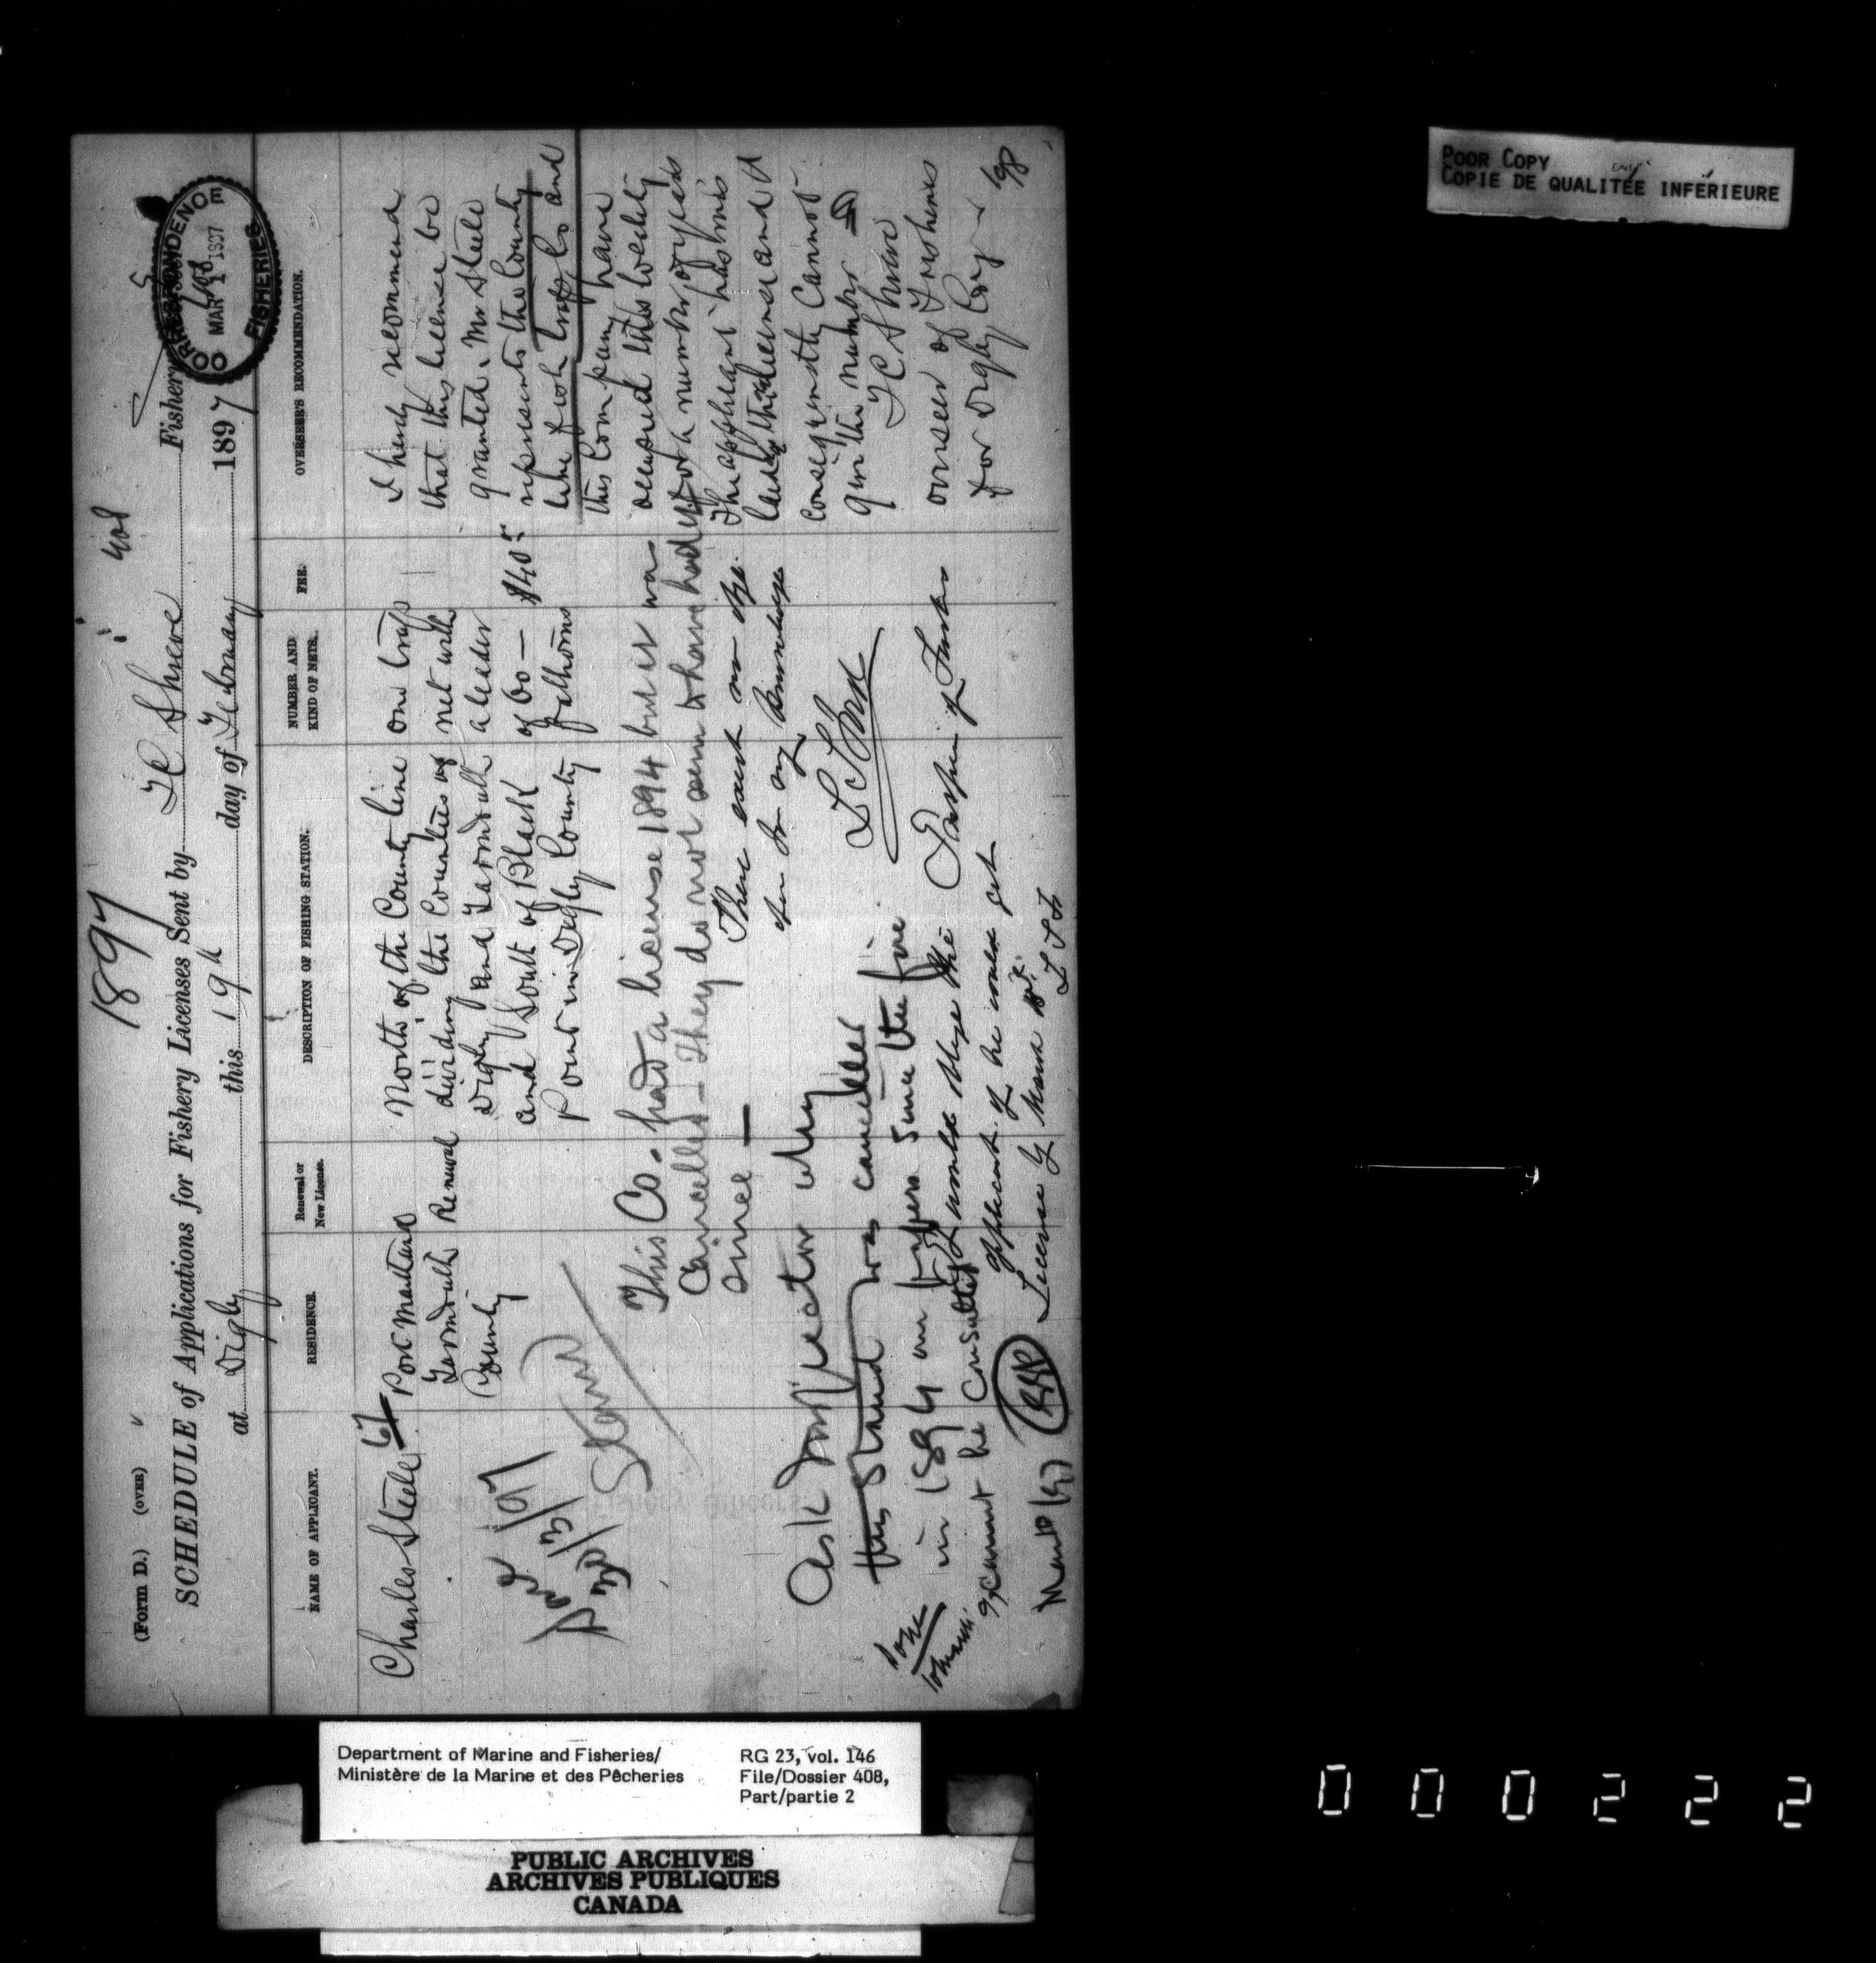 1897
408
(Form D.) (OVER)
SCHEDULE of Applications for Fishery Licenses Sent by J C Shreve Fishery
at Digby this 19th day of February 1897
CORRESPONDENCE
408
MAR 1 1897
FISHERIES
NAME OF APPLICANT.
RESIDENCE.
Renewal or New License.
DESCRIPTION OF FISHING STATION.
NUMBER AND KIND OF NETS.
FEE.
OVERSEER'S RECOMMENDATION.
Charles Steele 67
Port Maitland
Yarmouth
County
Renewal
North of the County line
dividing the Counties of
Digby and Yarmouth
and South of Black
Point in Digby County
one trap
net with
a leader
of 60 —
fathoms
$40
I hereby recommend
that this license be
granted. Mr Steele
represents the County
line Fish Trap Co and
this Company have
occupied this locality
for a number of years
The applicant has his
last license and I
consequently cannot
give the number
J C Shreve
overseer of Fisheries
for Digby Coy
This Co. had a license 1894 but it was
Cancelled — They do not seem to have had
since —
Stand
There exist no
for any
Ask Inspector why
this stand was cancelled
in 1894 our papers since then
cannot be consulted
I would oblige the
applicant if he could get
License
RNV
POOR COPY
COPIE DE QUALITÉE INFÉRIEURE
Department of Marine and Fisheries/
Ministère de la Marine et des Pêcheries
RG 23, vol. 146
File/Dossier 408,
Part/partie 2
PUBLIC ARCHIVES
ARCHIVES PUBLIQUES
CANADA
000222